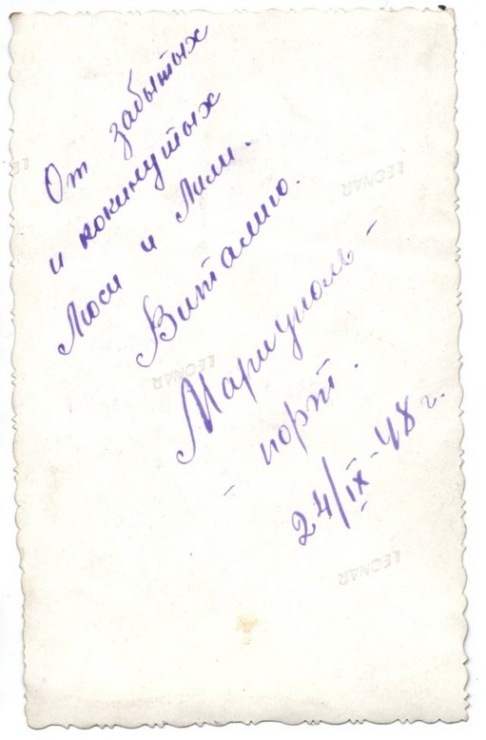 От забытых
и покинутых
Люси и Лили.
Виталию.
Мариуполь -
- порт.
24/IX-48 г.
LEONAR
LEONAR
LEONAR